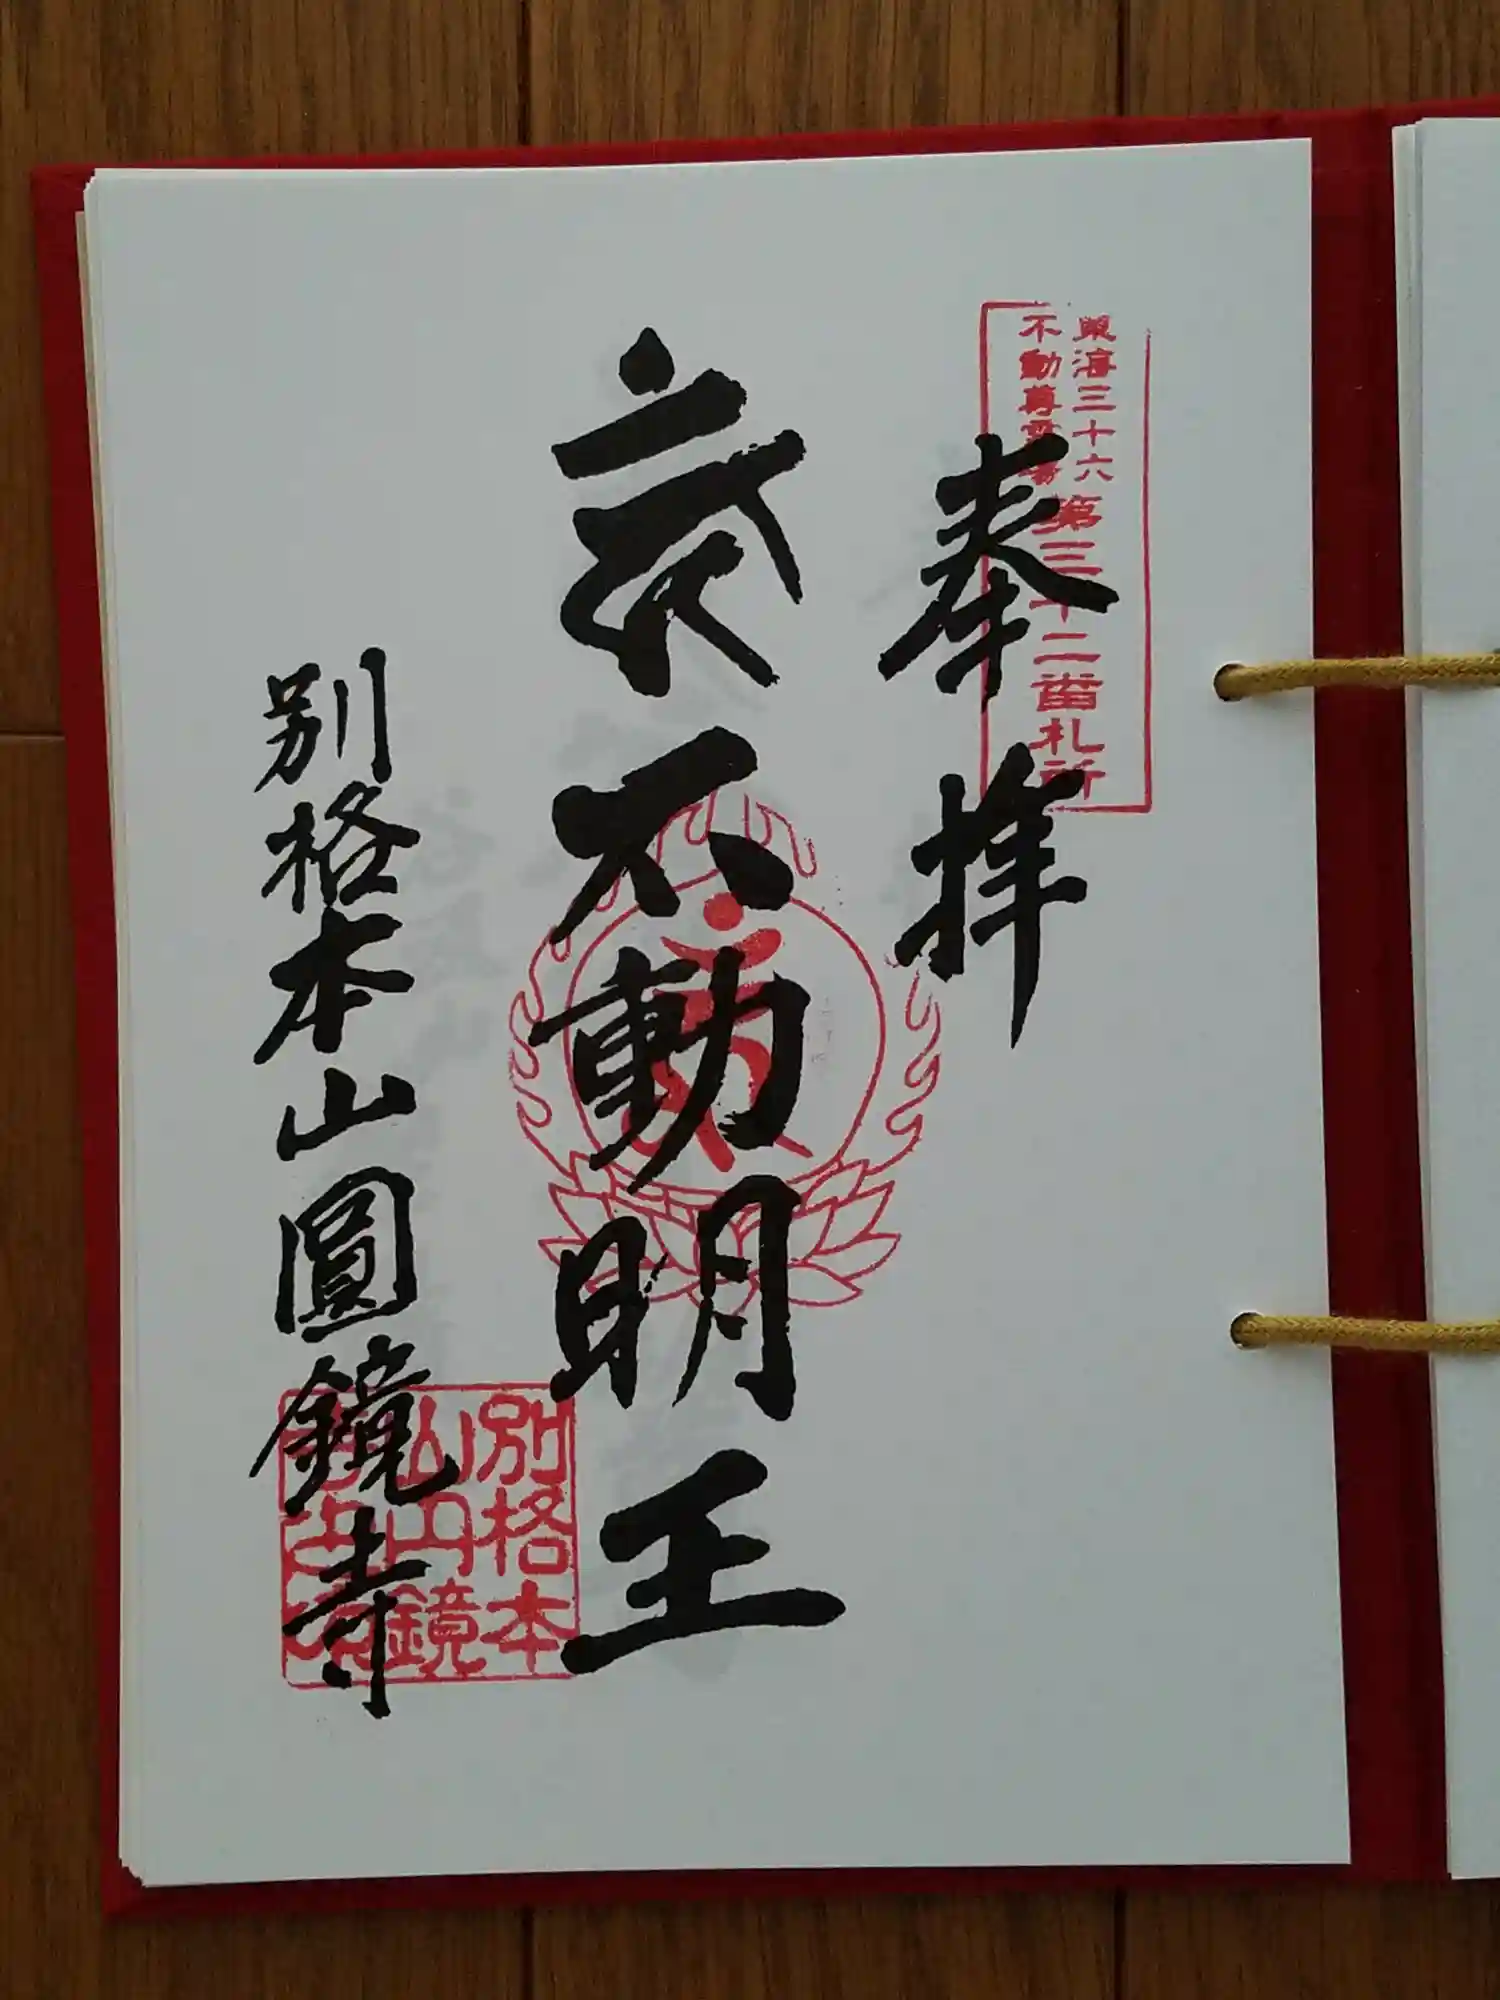 東海三十六
不動尊霊場
第三十二番札所
奉拝
不動明王
別格本山圓鏡寺
別格本
山円鏡